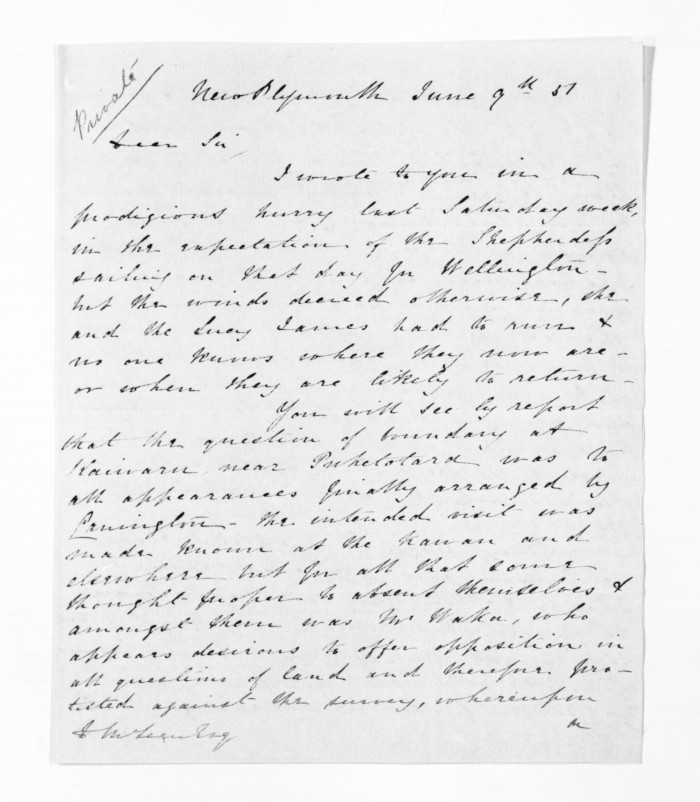 Private
New Plymouth June 9th 51
Dear Sir
I wrote to you in a
prodigious hurry last Saturday week,
in the expectation of the Shepherdess
sailing on that day for Wellington -
but the winds decided otherwise, she
and the Lucy James had to run &
no one knows where they now are -
or when they are likely to return -
You will see by report
that the question of boundary at
near Puketotara was to
all appearances finally arranged by
- the intended visit was
made known at the Kawau and
elsewhere but for all that some
thought proper to absent themselves &
amongst them was Mr Waka, who
appears desirous to offer opposition in
all questions of land and therefore pro-
tested against the survey, whereupon
D McLean Esq